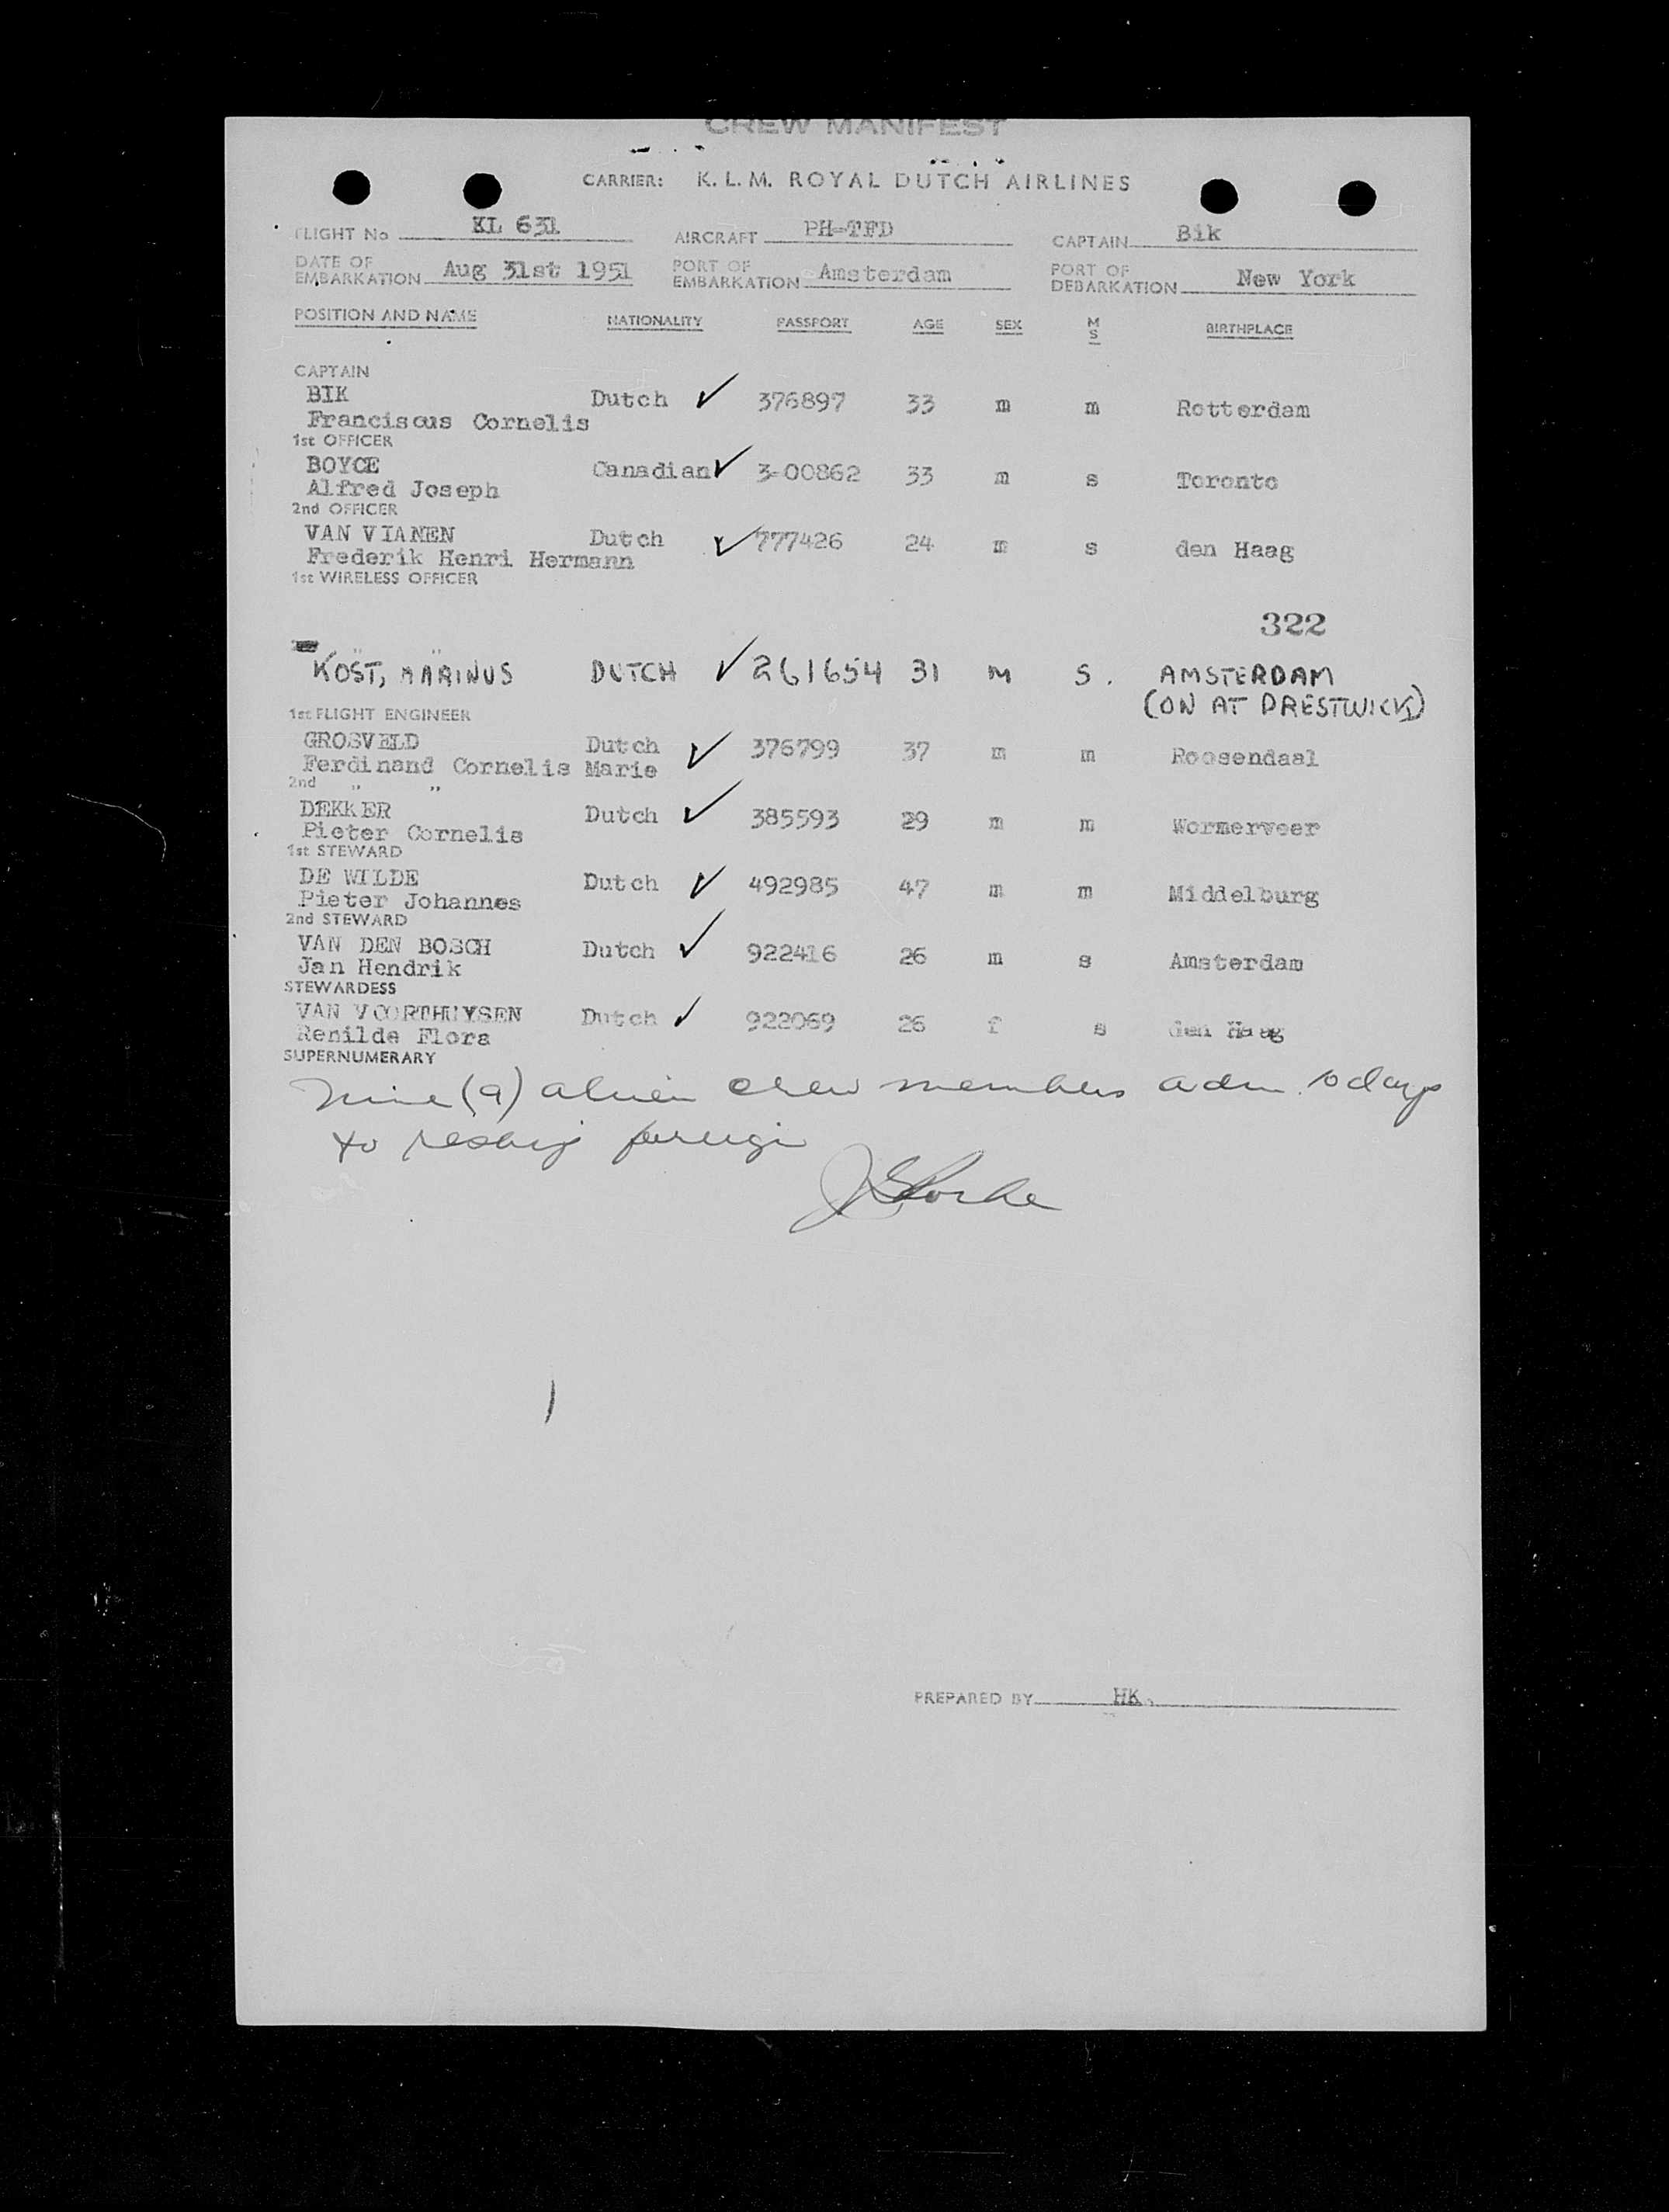 CREW MANIFEST
CARRIER: K. L. M. ROYAL DUTCH AIRLINES
FLIGHT No KL 631 AIRCRAFT PH-TFD CAPTAIN Bik
DATE OF EMBARKATION Aug 31st 1951 PORT OF EMBARKATION Amsterdam PORT OF DEBARKATION New York
POSITION AND NAME NATIONALITY PASSPORT AGE SEX M S BIRTHPLACE
CAPTAIN
BIK Dutch ✓ 376897 33 m m Rotterdam
Franciscus Cornelis
1st OFFICER
BOYCE Canadian ✓ 3-00862 33 m s Toronto
Alfred Joseph
2nd OFFICER
VAN VIANEN Dutch ✓ 777426 24 m s den Haag
Frederik Henri Hermann
1st WIRELESS OFFICER
322
KOST, MARINUS DUTCH ✓ 261654 31 M S. AMSTERDAM
(ON AT PRESTWICK)
1st FLIGHT ENGINEER
GROSVELD Dutch ✓ 376799 37 m m Roosendaal
Ferdinand Cornelis Marie
2nd " "
DEKKER Dutch ✓ 385593 29 m m Wormerveer
Pieter Cornelis
1st STEWARD
DE WILDE Dutch ✓ 492985 47 m m Middelburg
Pieter Johannes
2nd STEWARD
VAN DEN BOSCH Dutch ✓ 922416 26 m s Amsterdam
Jan Hendrik
STEWARDESS
VAN VOORTHUYSEN Dutch ✓ 922069 26 f s den Haag
Renilde Flora
SUPERNUMERARY
Nine (9) alien crew members adm. 10 days
to reship foreign
PREPARED BY HK.